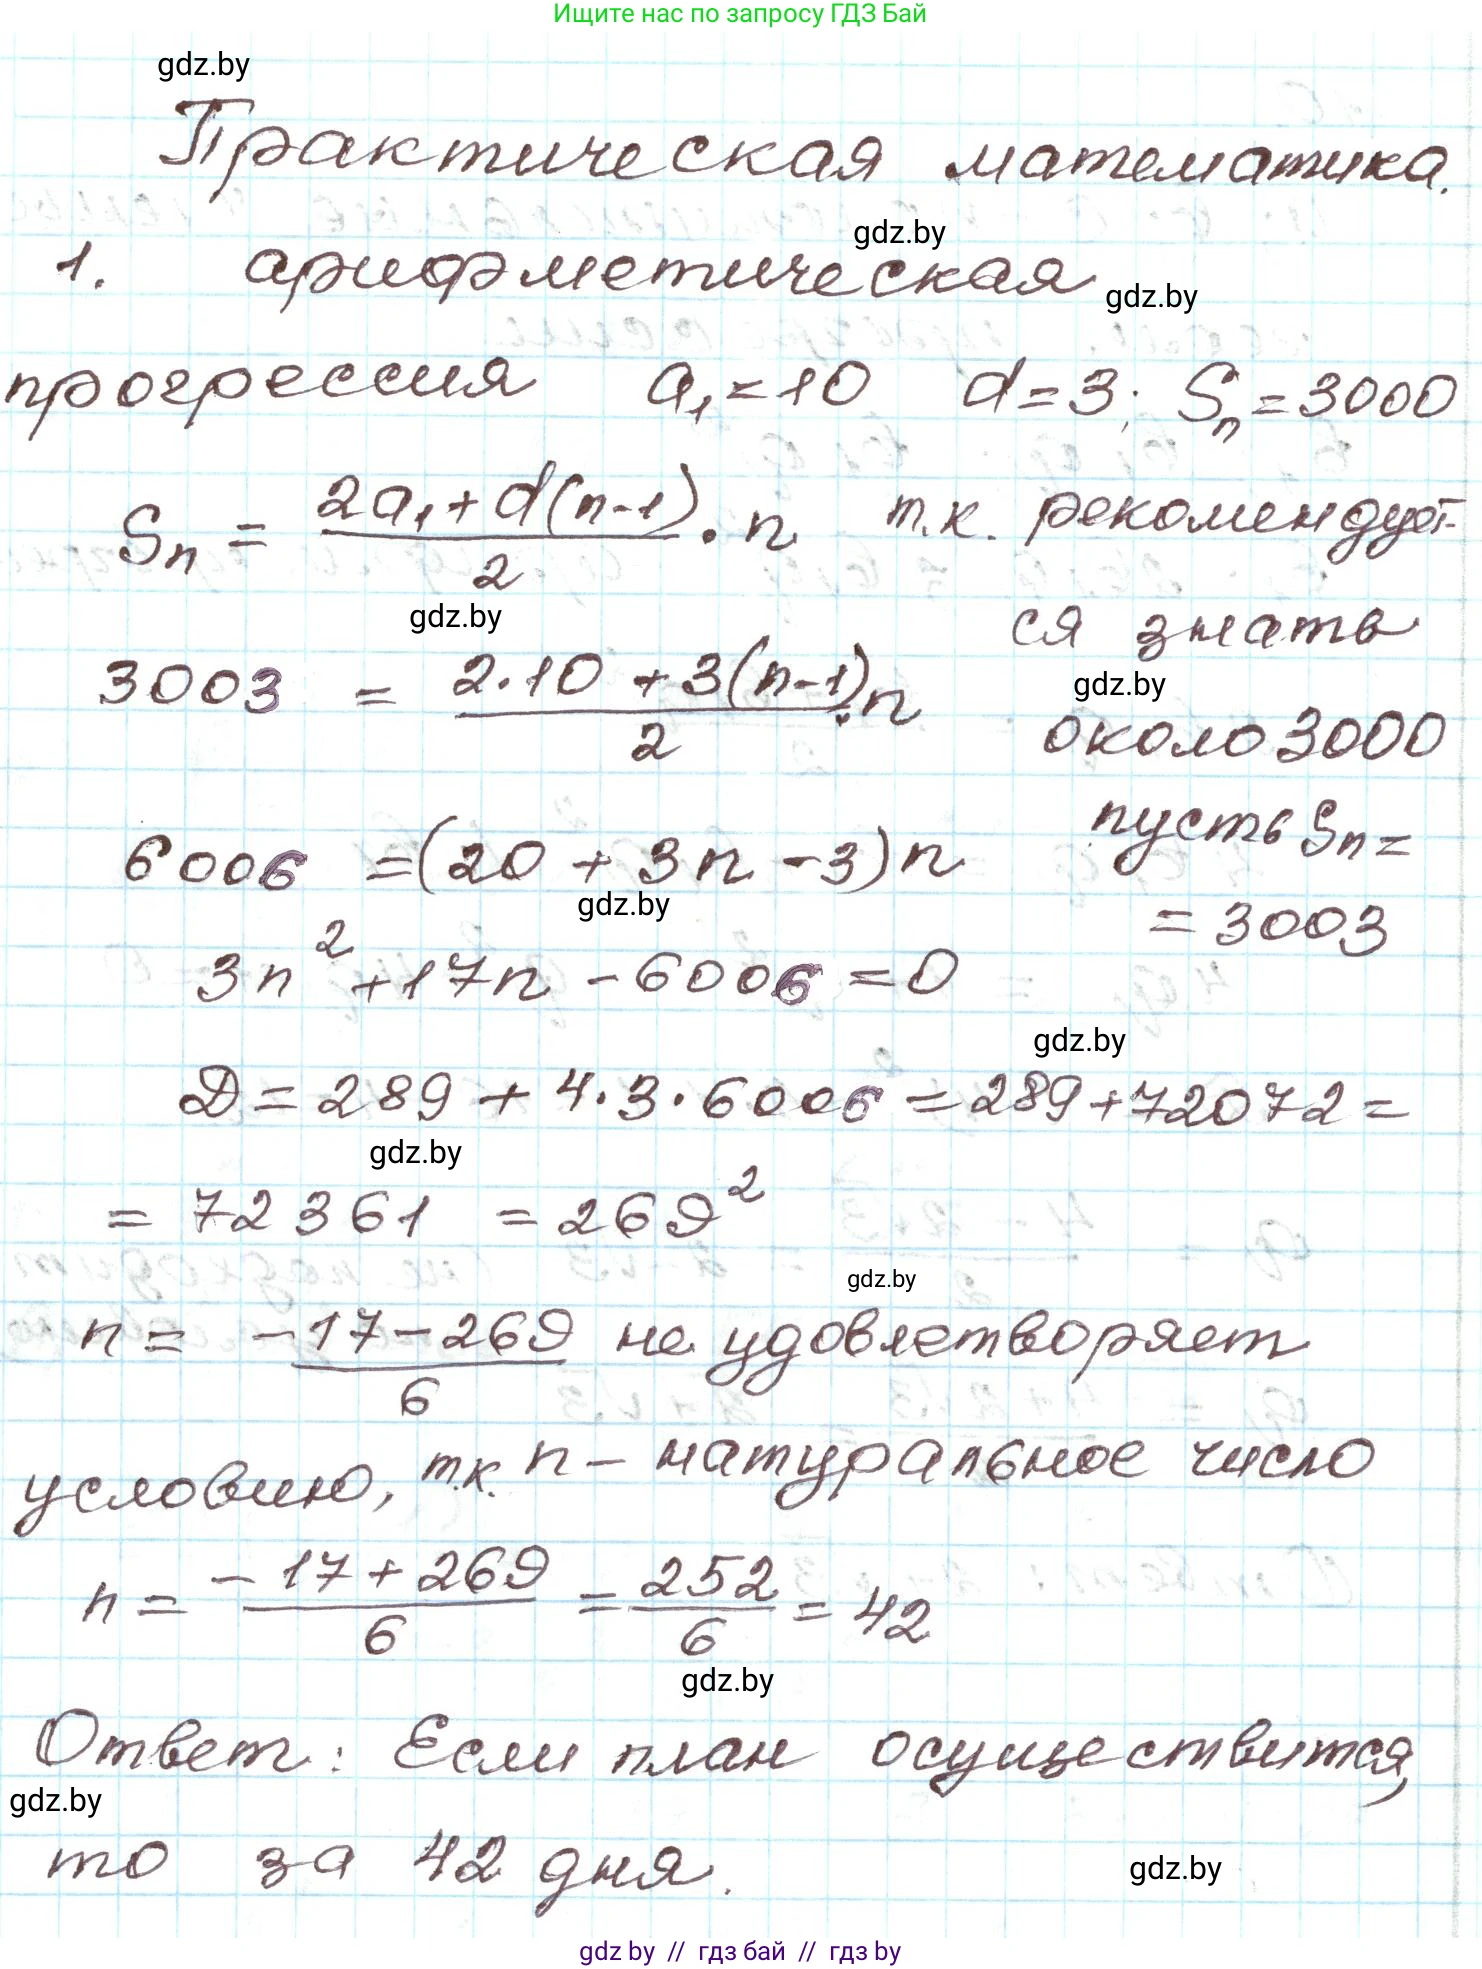 Ищите нас по запросу ГДЗ Бай
gdz.by
Практическая математика.
gdz.by
1. арифметическая
gdz.by
прогрессия a₁ = 10 d = 3; Sₙ = 3000
Sₙ = (2a₁ + d(n-1))/2 · n т.к. рекомендует-
gdz.by
ся знать
gdz.by
3003 = (2·10 + 3(n-1))/2 · n
около 3000
6006 = (20 + 3n - 3)n
пусть Sₙ =
gdz.by
= 3003
3n² + 17n - 6006 = 0
gdz.by
D = 289 + 4·3·6006 = 289 + 72072 =
gdz.by
= 72361 = 269²
gdz.by
n = (-17-269)/6 не удовлетворяет
условию, т.к. n - натуральное число
n = (-17+269)/6 = 252/6 = 42
gdz.by
Ответ: Если план осуществится,
gdz.by
то за 42 дня.
gdz.by
gdz by // гдз бай // gdz by